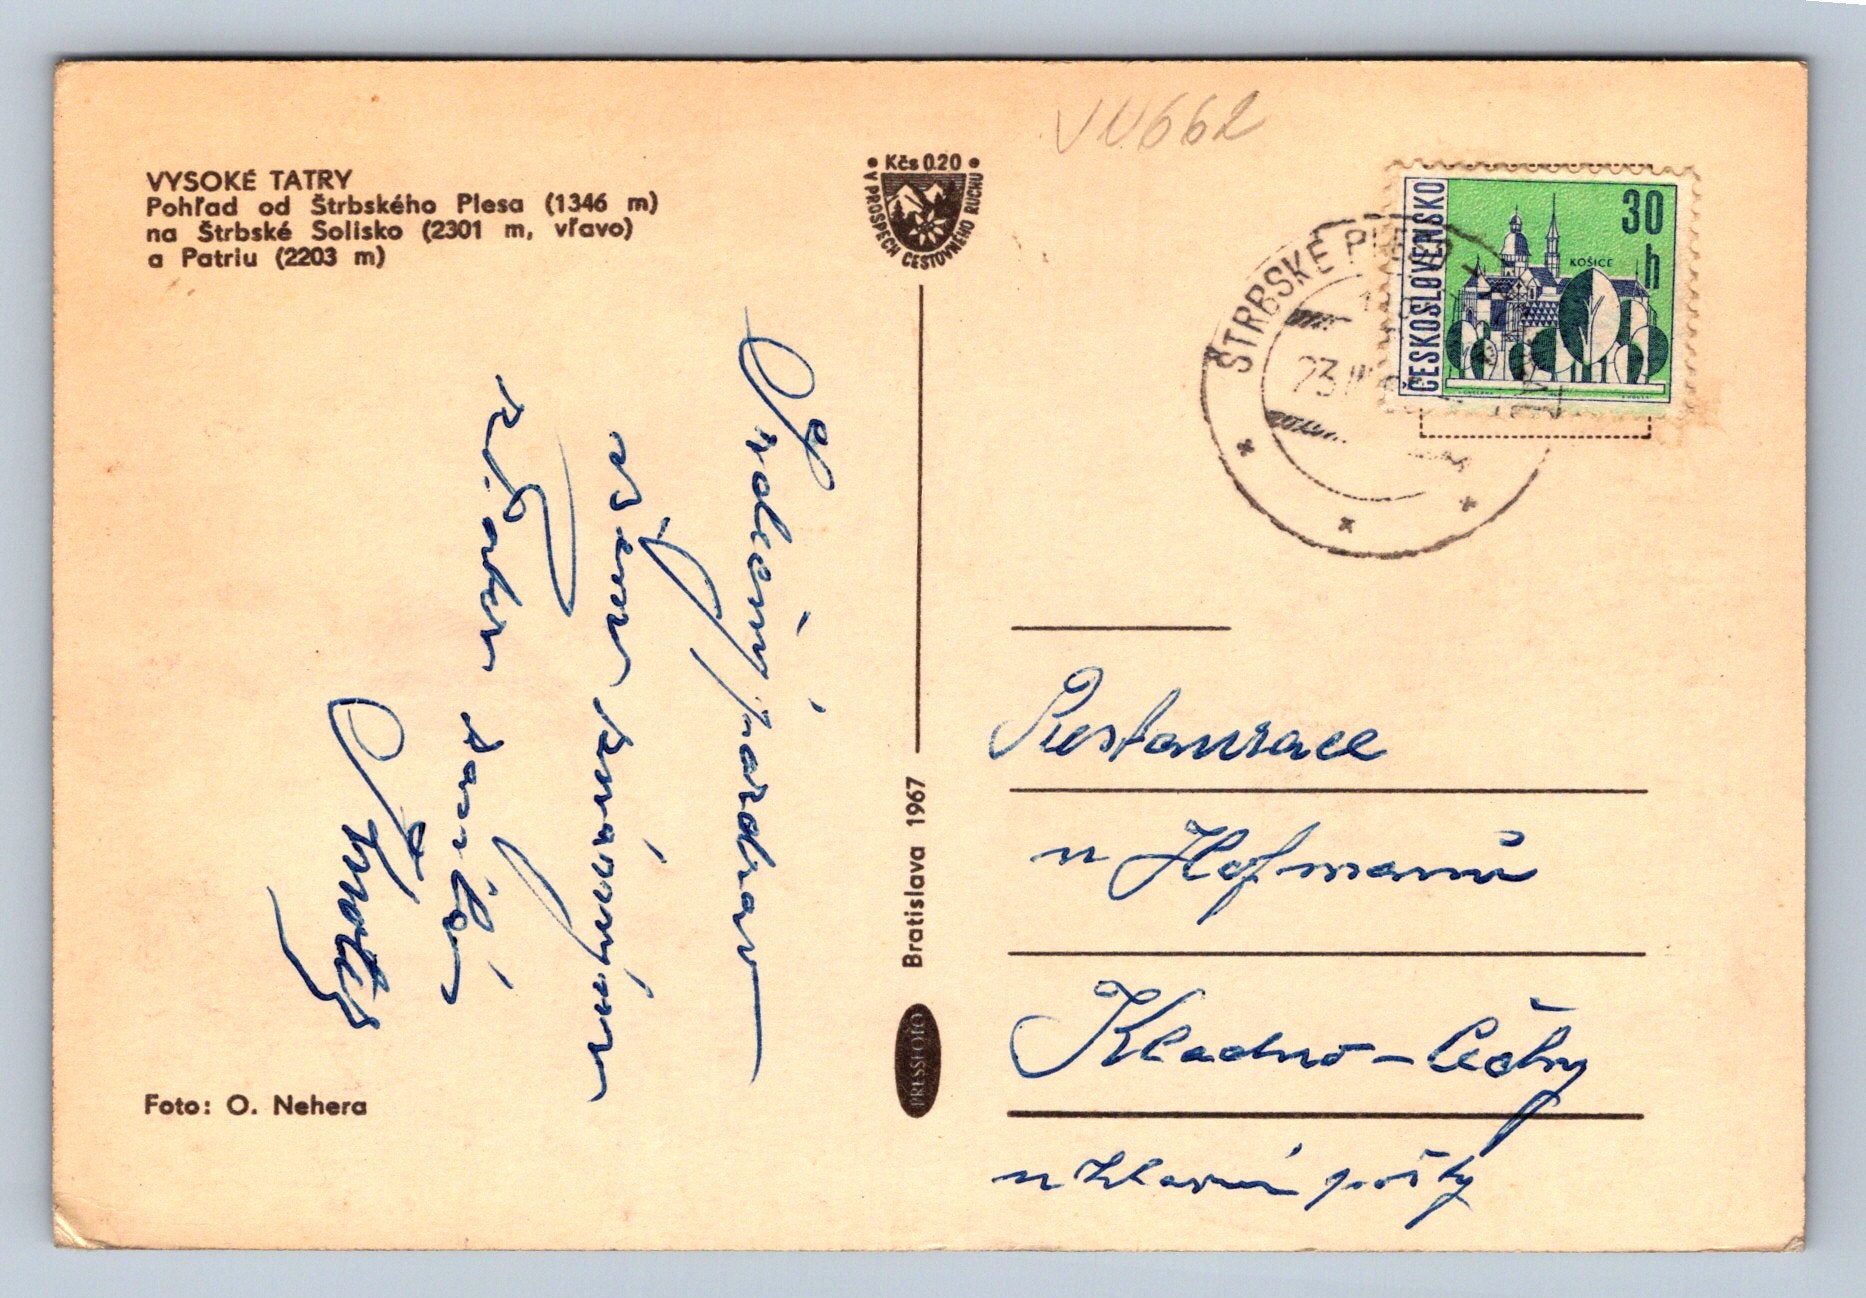 VU662
VYSOKÉ TATRY
Pohľad od Štrbského Plesa (1346 m)
na Štrbské Solisko (2301 m, vľavo)
a Patriu (2203 m)
• Kčs 0.20 •
V PROSPECH CESTOVNÉHO RUCHU
ŠTRBSKÉ PLESO
23
ČESKOSLOVENSKO
30
h
KOŠICE
Srdečný pozdrav
všem
Restaurace
u Hofmanů
Kladno - Čechy
u hlavní pošty
Bratislava 1967
PRESSFOTO
Foto: O. Nehera